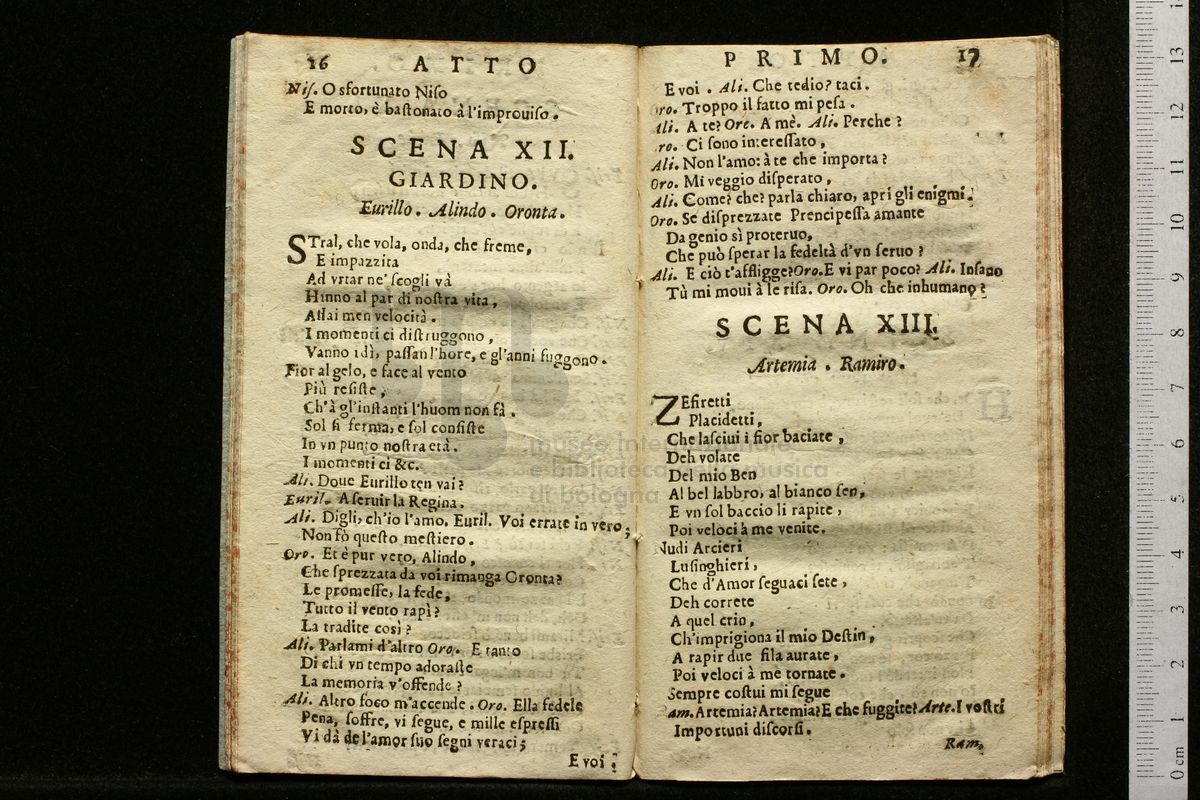 16 ATTO
Nis. O sfortunato Niso
E morto, è bastonato à l'improuiso.
SCENA XII.
GIARDINO.
Eurillo. Alindo. Oronta.
STral, che vola, onda, che freme,
E impazzita
Ad vrtar ne' scogli và
Hanno al par di nostra vita,
Assai men velocità.
I momenti ci distruggono,
Vanno i dì, passan l'hore, e gl'anni fuggono.
Fior al gelo, e face al vento
Più resiste,
Ch'à gl'instanti l'huom non fà.
Sol si ferma, e sol consiste
In vn punto nostra età.
I momenti ci &c.
Ali. Doue Eurillo ten vai?
Euril. A seruir la Regina.
Ali. Digli, ch'io l'amo. Euril. Voi errate in vero;
Non fò questo mestiero.
Oro. Et è pur vero, Alindo,
Che sprezzata da voi rimanga Oronta?
Le promesse, la fede,
Tutto il vento rapì?
La tradite così?
Ali. Parlami d'altro Oro. E tanto
Di chi vn tempo adoraste
La memoria v'offende?
Ali. Altro foco m'accende. Oro. Ella fedele
Pena, soffre, vi segue, e mille espressi
Vi dà de l'amor suo segni veraci;
E voi.
PRIMO. 17
E voi. Ali. Che tedio? taci.
Oro. Troppo il fatto mi pesa.
Ali. A te? Oro. A mè. Ali. Perche?
Oro. Ci sono interessato,
Ali. Non l'amo: à te che importa?
Oro. Mi veggio disperato,
Ali. Come? che? parla chiaro, apri gli enigmi.
Oro. Se disprezzate Prencipessa amante
Da genio sì proteruo,
Che può sperar la fedeltà d'vn seruo?
Ali. E ciò t'affligge? Oro. E vi par poco? Ali. Insano
Tù mi moui à le risa. Oro. Oh che inhumano?
SCENA XIII.
Artemia. Ramiro.
ZEfiretti
Placidetti,
Che lasciui i fior baciate,
Deh volate
Del mio Ben
Al bel labbro, al bianco sen,
E vn sol baccio li rapite,
Poi veloci à me venite.
Nudi Arcieri
Lusinghieri,
Che d'Amor seguaci sete,
Deh correte
A quel crin,
Ch'imprigiona il mio Destin,
A rapir due fila aurate,
Poi veloci à mè tornate.
Sempre costui mi segue
am. Artemia? Artemia? E che fuggite? Arte. I vostri
Importuni discorsi.
Ram.
museo internazionale
e biblioteca della musica
di bologna
0 cm 1 2 3 4 5 6 7 8 9 10 11 12 13